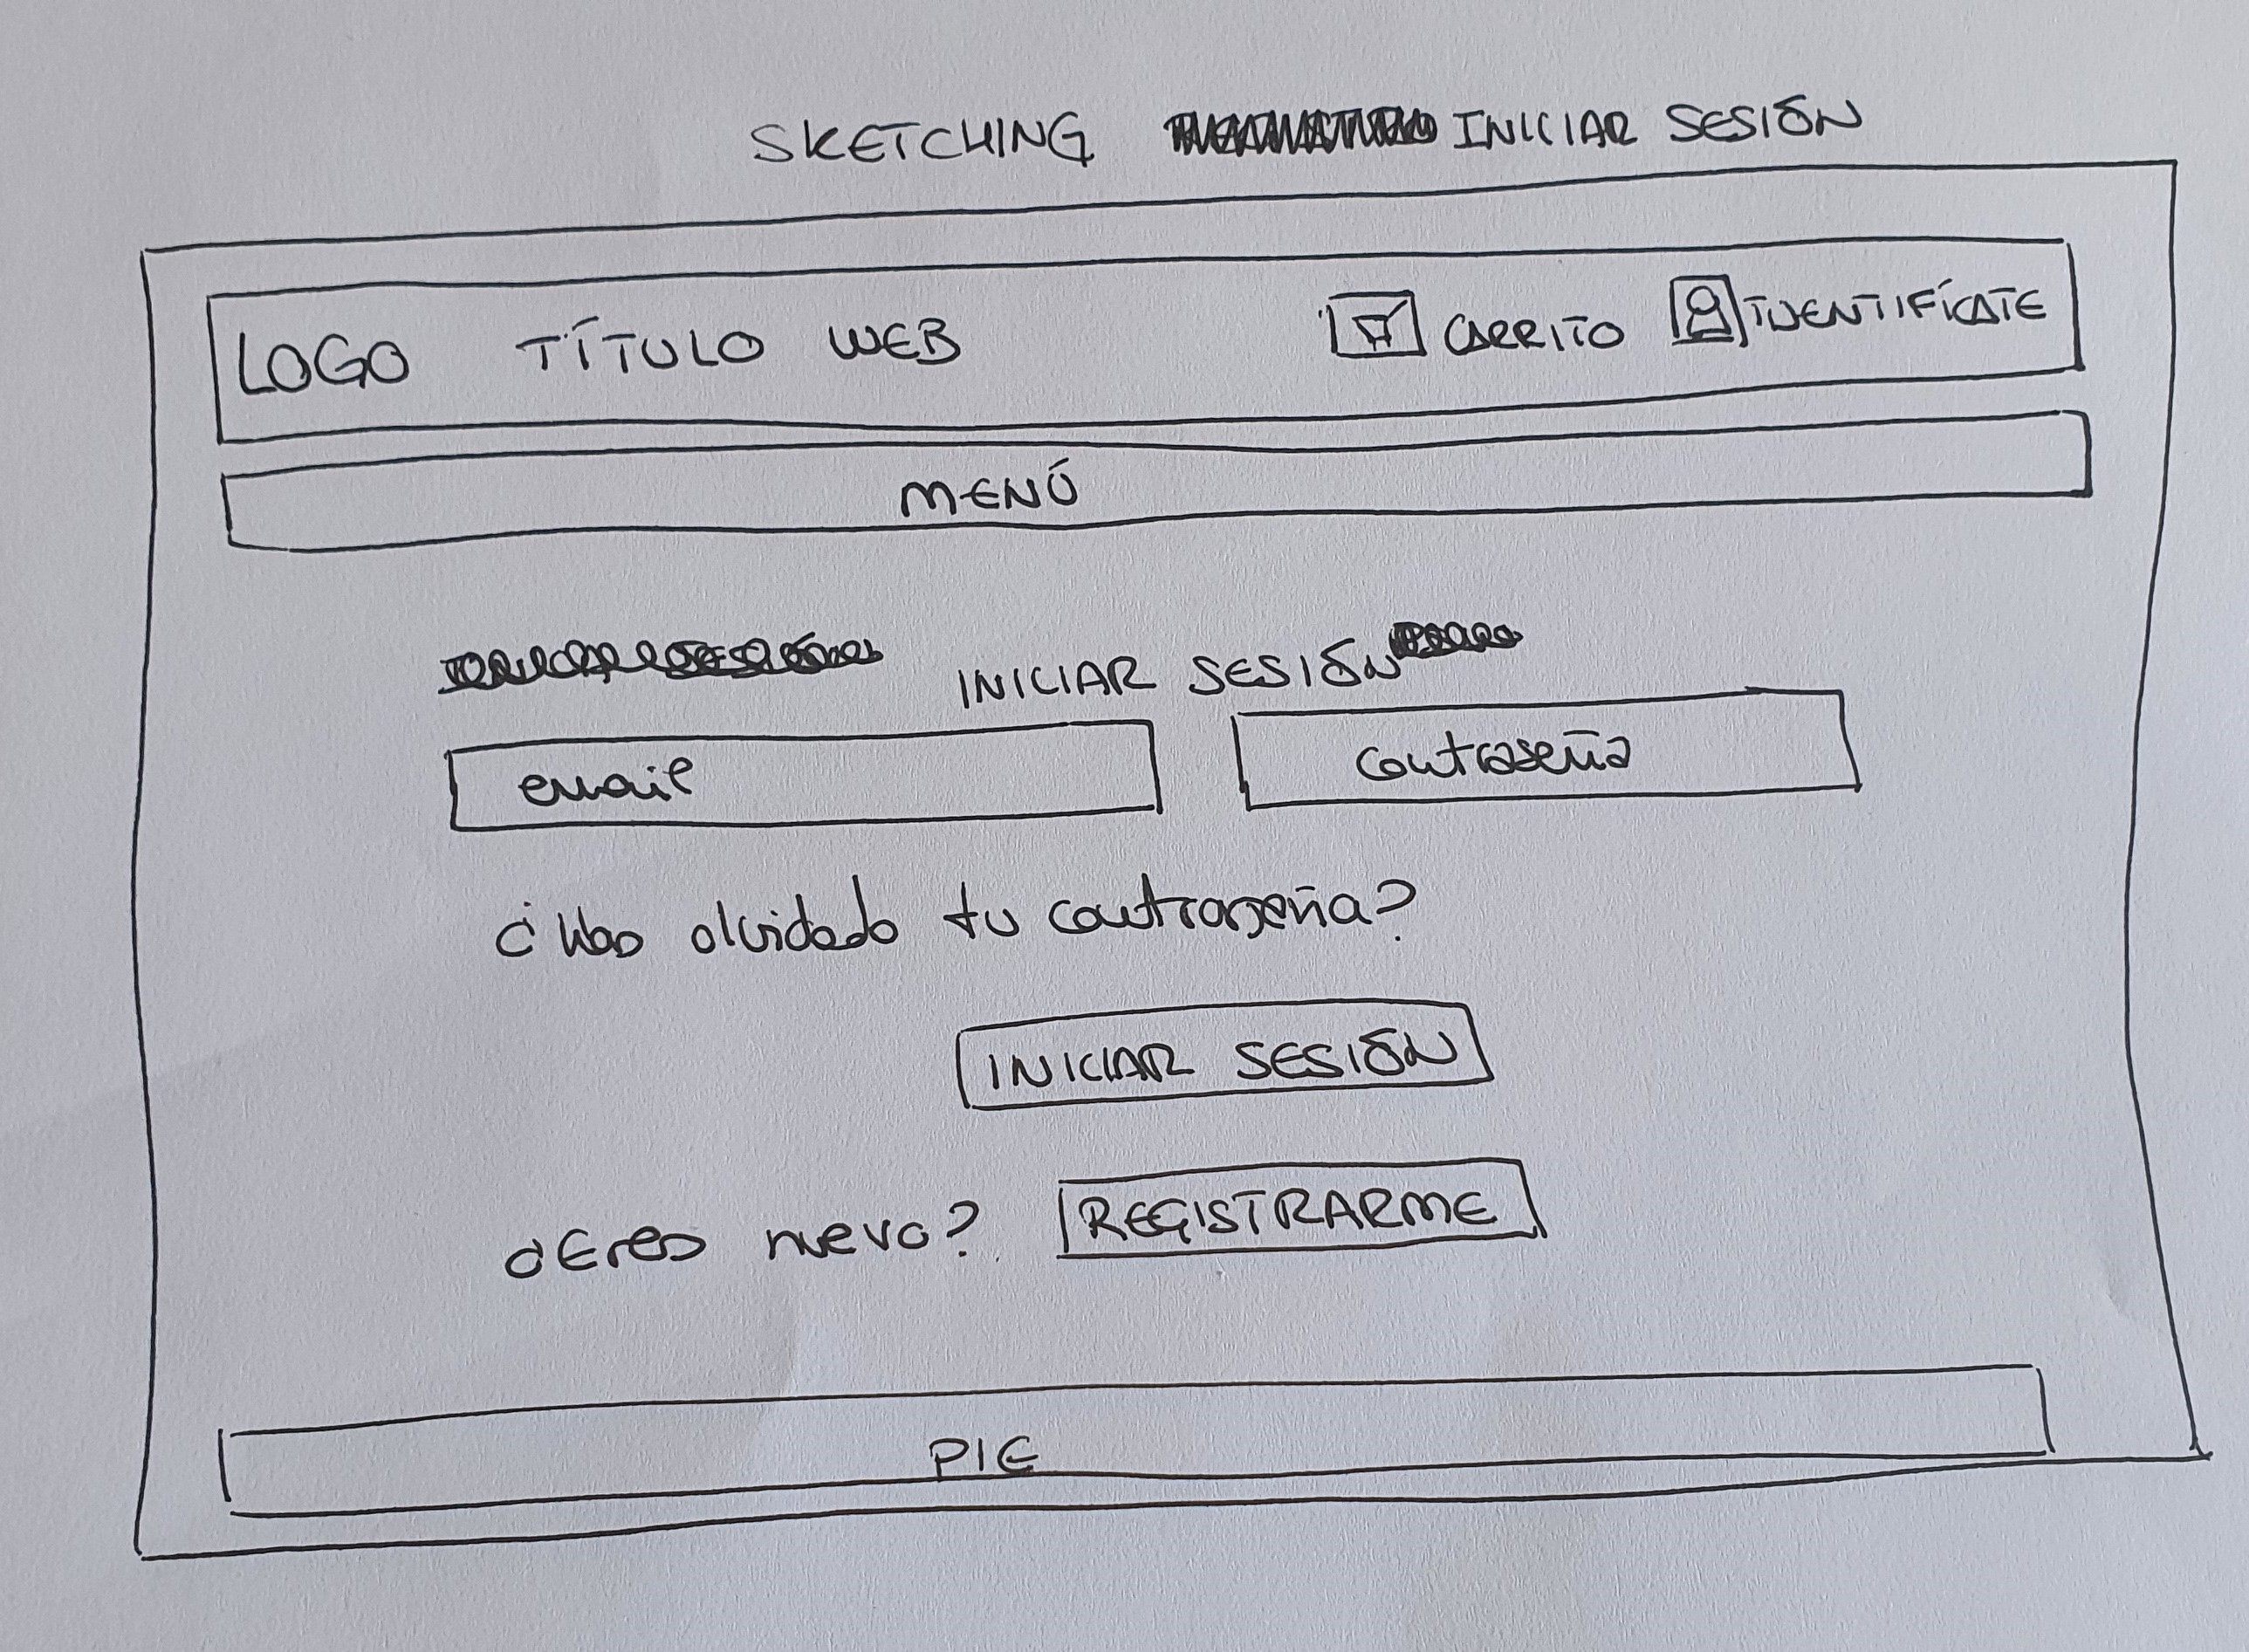 SKETCHING INICIAR SESIÓN
LOGO TÍTULO WEB CARRITO IDENTIFÍCATE
MENÚ
INICIAR SESIÓN
email contraseña
¿Has olvidado tu contraseña?
INICIAR SESIÓN
¿Eres nuevo? REGISTRARME
PIE